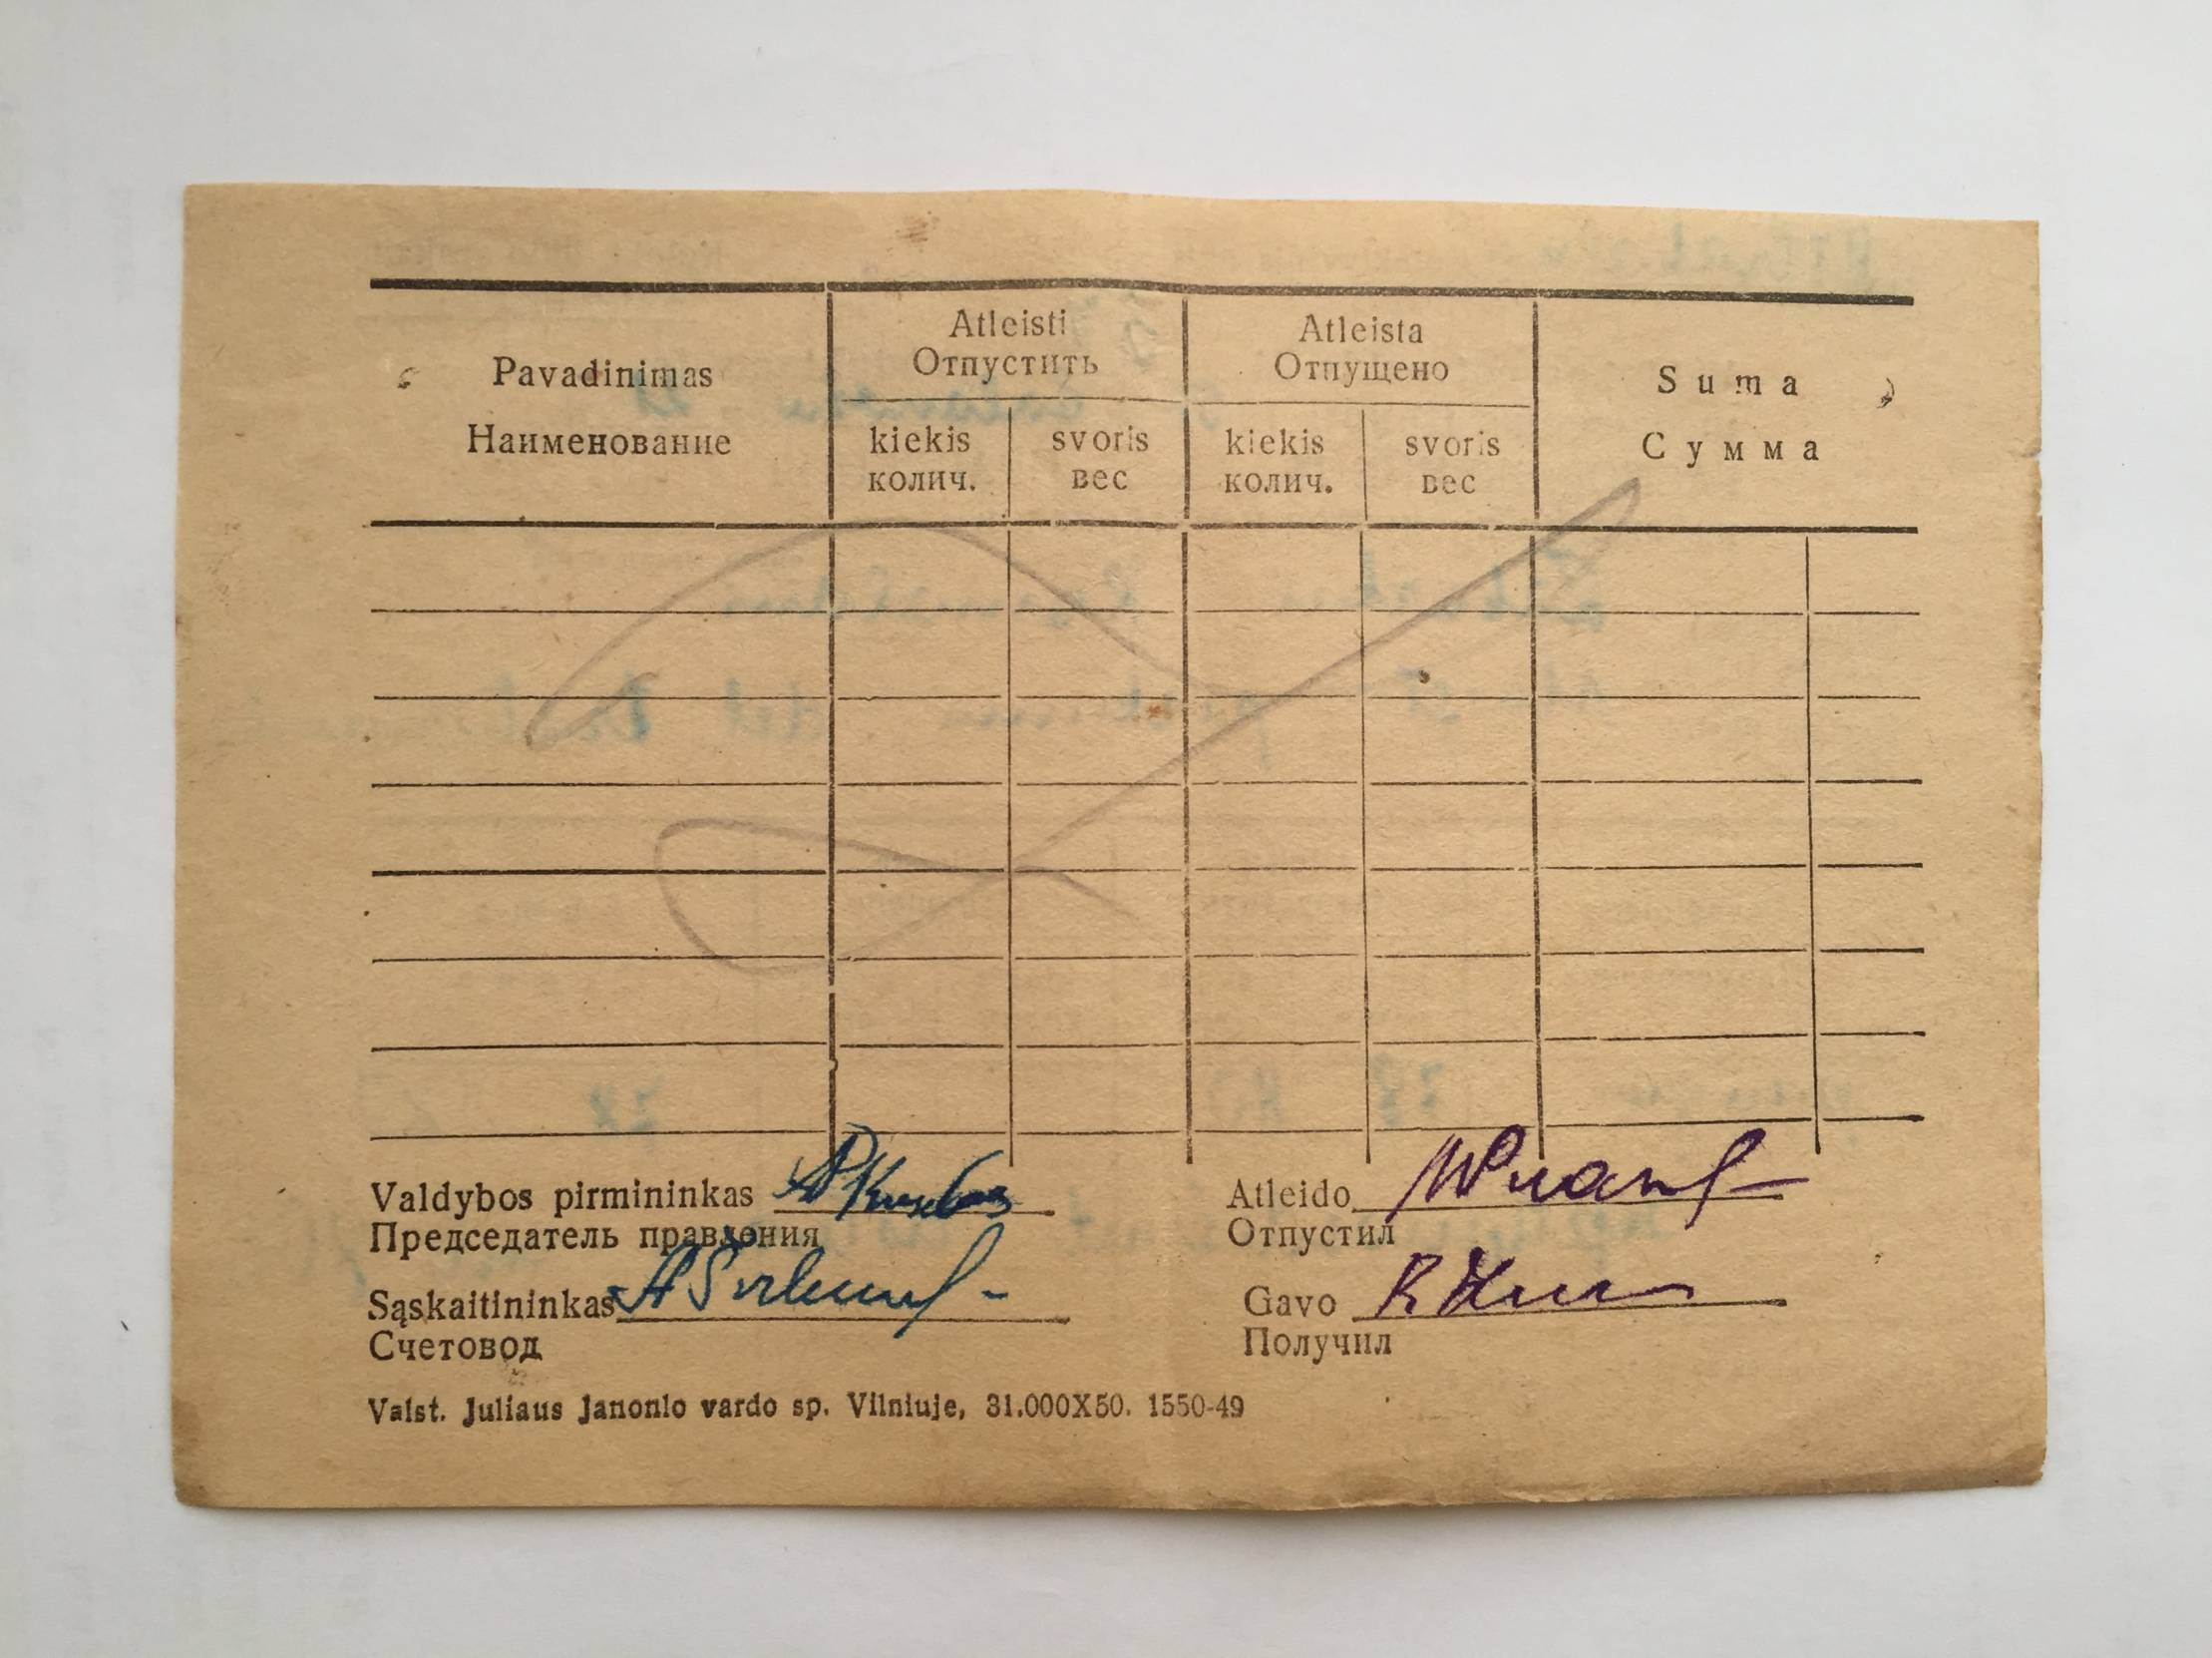 Pavadinimas
Наименование
Atleisti
Отпустить
Atleista
Отпущено
Suma
Сумма
kiekis
колич.
svoris
вес
kiekis
колич.
svoris
вес
Valdybos pirmininkas
Председатель правления
Sąskaitininkas
Счетовод
Atleido
Отпустил
Gavo
Получил
Valst. Juliaus Janonio vardo sp. Vilniuje, 31.000X50. 1550-49